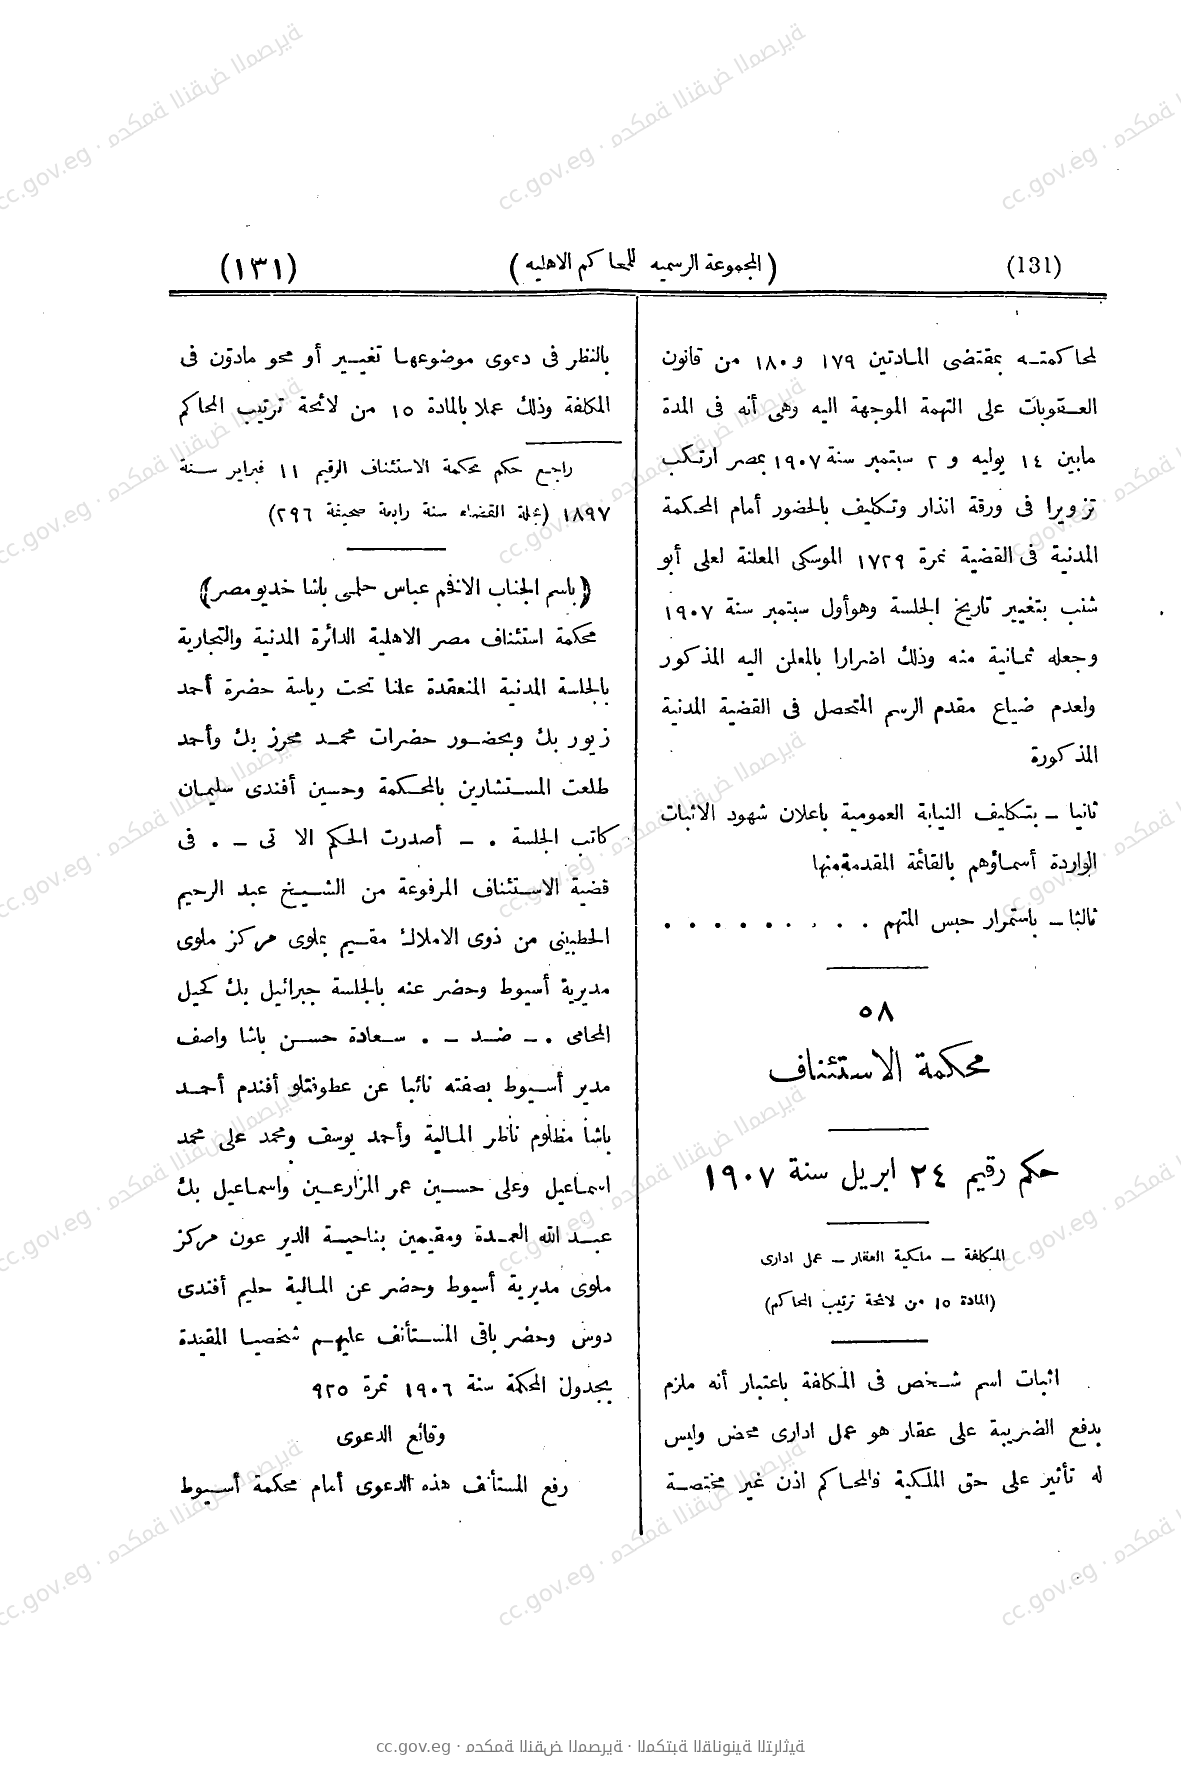 (131) (المجموعة الرسميه للمحاكم الاهليه) (١٣١)
لمحاكمتـه بمقتضى المادتين ١٧٩ و ١٨٠ من قانون
العقوبات على التهمة الموجهة اليه وهى أنه فى المدة
مابين ١٤ يوليه و ٢ سبتمبر سنة ١٩٠٧ بمصر ارتكب
تزويرا فى ورقة انذار وتكليف بالحضور أمام المحكمة
المدنية فى القضية نمرة ١٧٢٩ الموسكى المعلنة لعلى أبو
شنب بتغيير تاريخ الجلسة وهوأول سبتمبر سنة ١٩٠٧
وجعله ثمانية منه وذلك اضرارا بالمعلن اليه المذكور
ولعدم ضياع مقدم الرسم المتحصل فى القضية المدنية
المذكورة
ثانيا ــ بتكليف النيابة العمومية باعلان شهود الاثبات
الواردة أسماؤهم بالقائمة المقدمةمنها
ثالثا ــ باستمرار حبس المتهم . . . . . . . . .
٥٨
محكمة الاستئناف
حكم رقيم ٢٤ ابريل سنة ١٩٠٧
المكلفة ــ ملكية العقار ــ عمل ادارى
(المادة ١٥ من لائحة ترتيب المحاكم)
اثبات اسم شـخص فى المكلفة باعتبار أنه ملزم
بدفع الضريبة على عقار هو عمل ادارى محض وليس
له تأثير على حق الملكية فالمحاكم اذن غير مختصـة
بالنظر فى دعوى موضوعهـا تغيـير أو محو مادوّن فى
المكلفة وذلك عملا بالمادة ١٥ من لائحة ترتيب المحاكم
راجع حكم محكمة الاستئناف الرقيم ١١ فبراير سـنة
١٨٩٧ (مجلة القضاء سنة رابعة صحيفة ٢٩٦)
(باسم الجناب الافخم عباس حلمى باشا خديو مصر)
محكمة استئناف مصر الاهلية الدائرة المدنية والتجارية
بالجلسة المدنية المنعقدة علنا تحت رياسة حضرة أحمد
زيور بك وبحضـور حضرات محمـد محرز بك وأحمد
طلعت المسـتشارين بالمحكمة وحسين أفندى سليمان
كاتب الجلسة . ــ أصدرت الحكم الا تى ــ . فى
قضية الاسـتئناف المرفوعة من الشـيخ عبد الرحيم
الخطيبى من ذوى الاملاك مقـيم بملوى مركز ملوى
مديرية أسيوط وحضر عنه بالجلسة جبرائيل بك كحيل
المحامى . ــ ضـد ــ . سـعادة حسـن باشا واصف
مدير أسـيوط بصفته نائبا عن عطوفتلو أفندم أحمـد
باشا مظلوم ناظر المالية وأحمد يوسف ومحمد على محمد
اسماعيل وعلى حسـين عمر المزارعـين واسماعيل بك
عبـد الله العمـدة ومقيمين بناحيـة الدير عون مركز
ملوى مديرية أسيوط وحضر عن المالية حليم أفندى
دوس وحضر باقى المسـتأنف عليهـم شخصيـا المقيدة
بجدول المحكمة سنة ١٩٠٦ نمرة ٩٢٥
وقائع الدعوى
رفع المستأنف هذه الدعوى أمام محكمة أسـيوط
cc.gov.eg · محكمة النقض المصرية · المكتبة القانونية التراثية